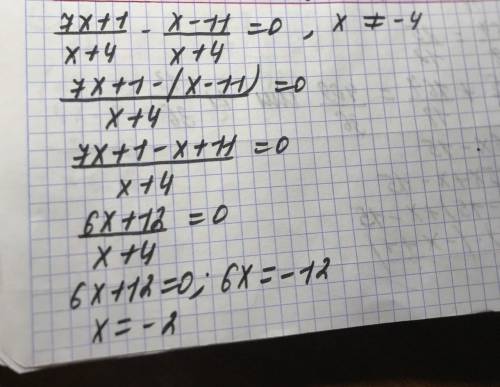 (7x+1)/(x+4) - (x-11)/(x+4) = 0 , x ≠ -4
(7x+1-(x-11))/(x+4) = 0
(7x+1-x+11)/(x+4) = 0
(6x+12)/(x+4) = 0
6x+12=0; 6x=-12
x=-2